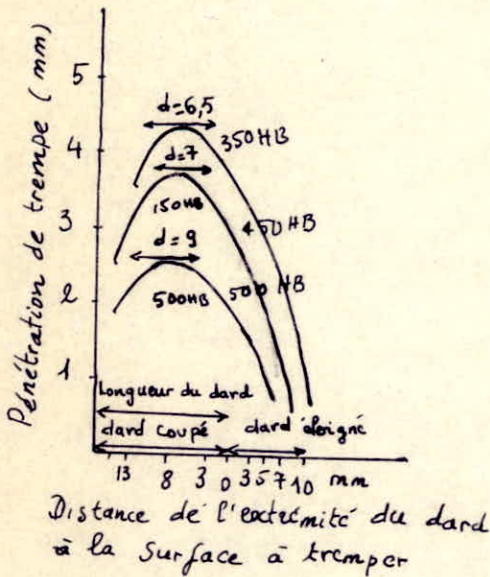 Pénétration de trempe (mm)
5
4
3
2
1
d=6,5
350HB
d=7
150HB
450HB
d=9
500HB
500 HB
Longueur du dard
dard coupé
dard éloigné
13 8 3 0 3 5 7 10 mm
Distance de l'extrémité du dard
à la surface à tremper